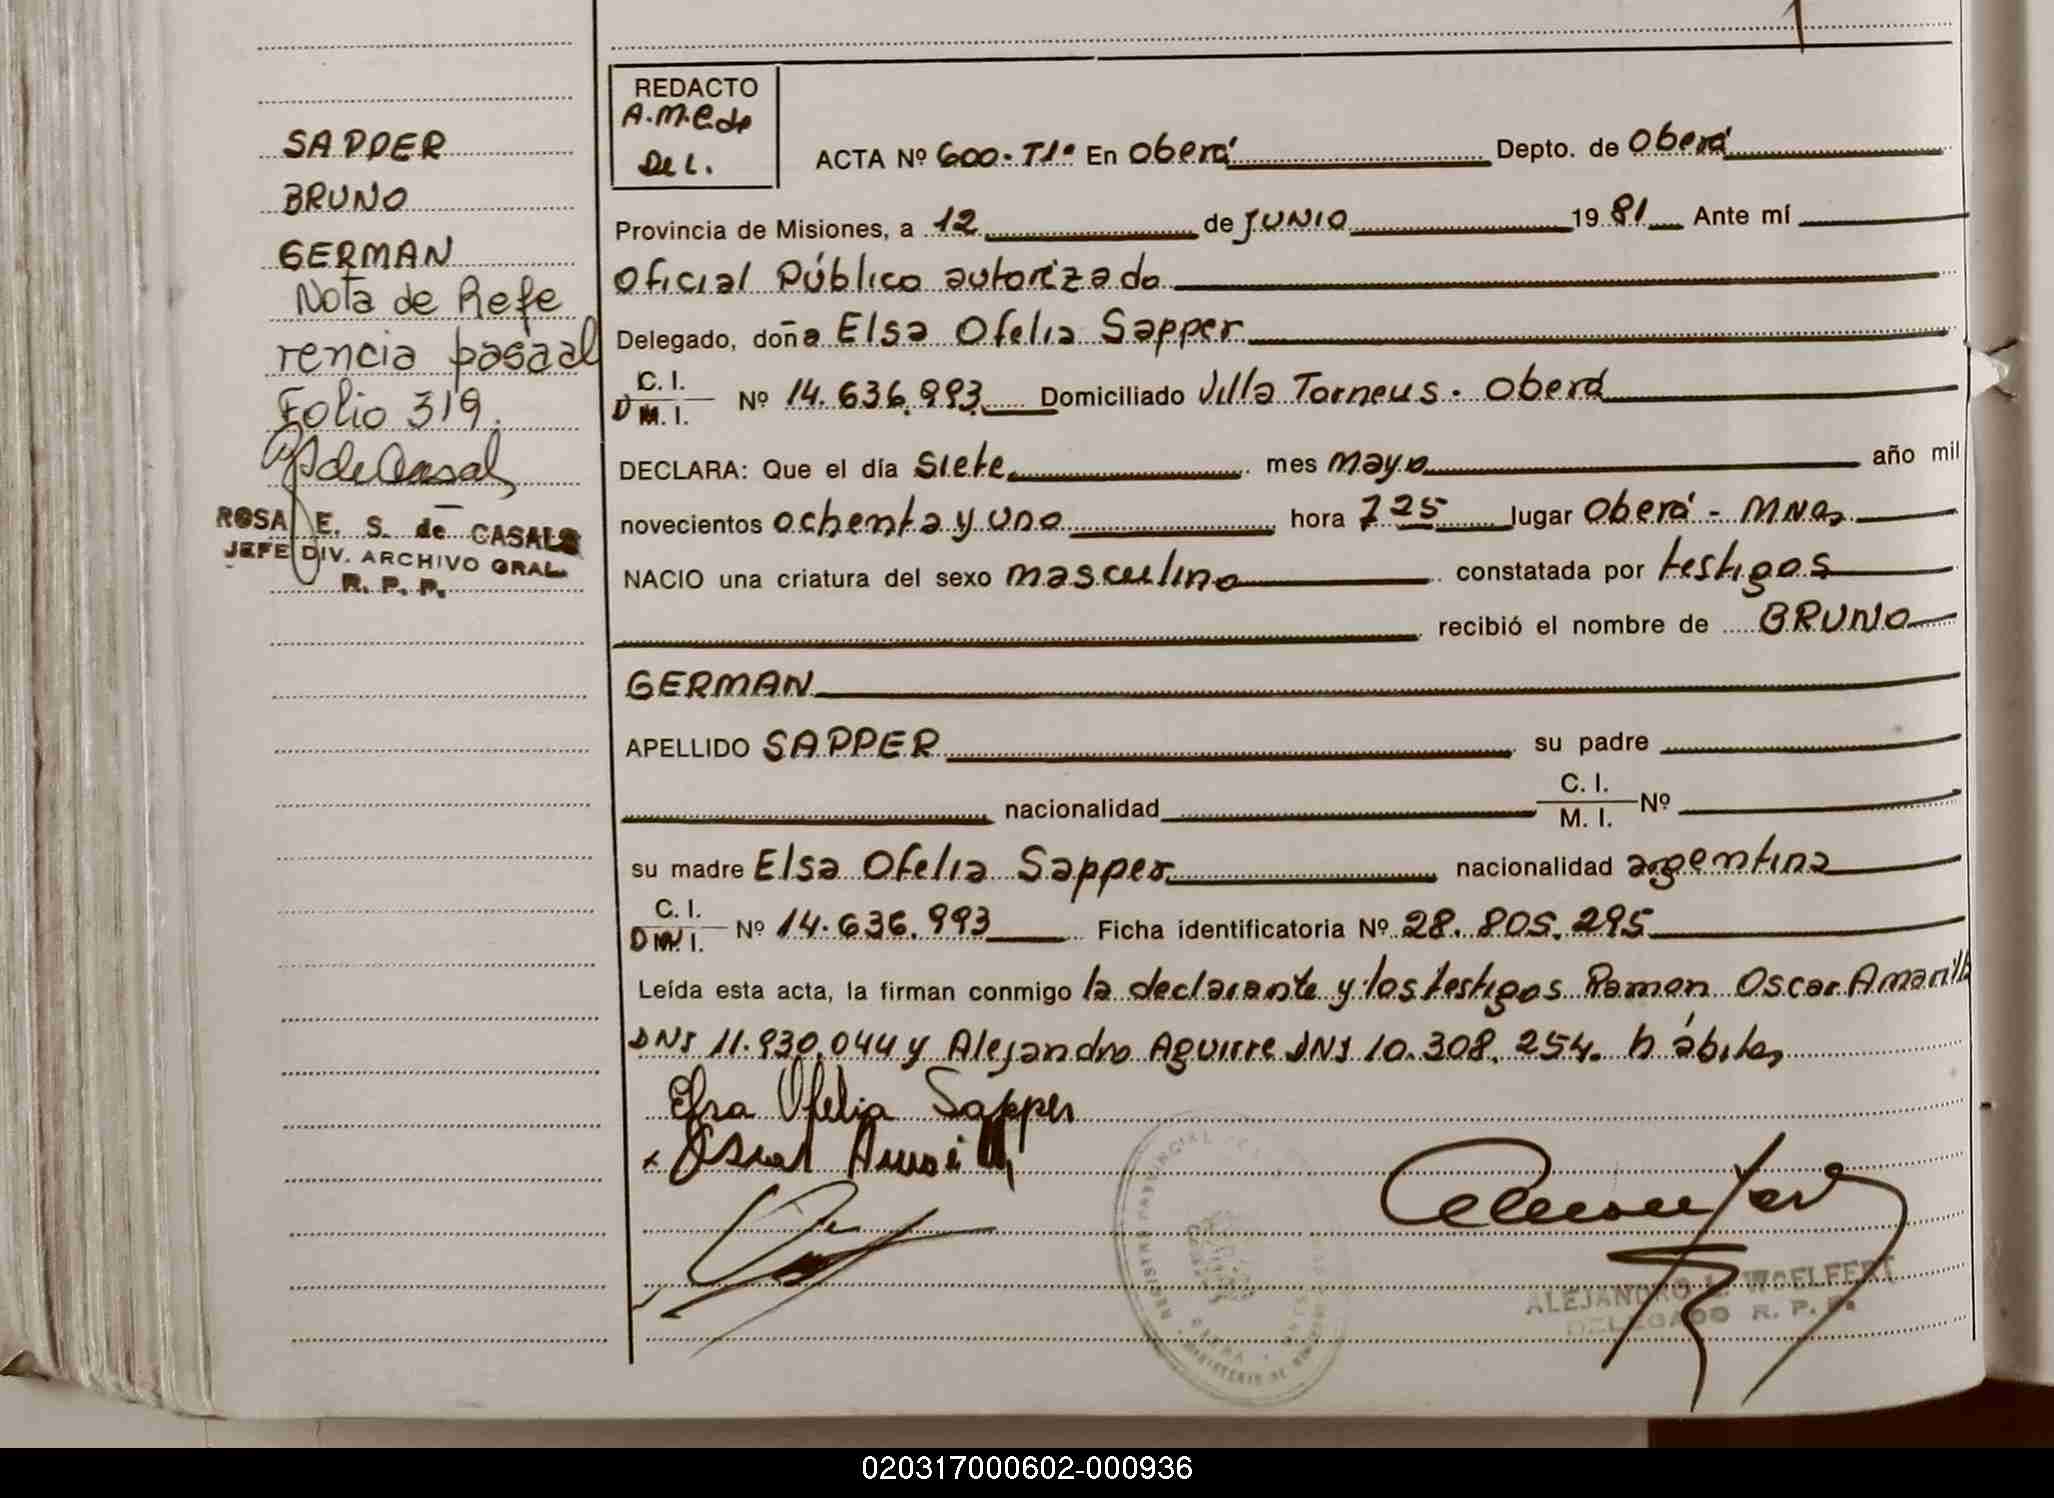 SAPPER
BRUNO
GERMAN
Nota de Refe
rencia pasa al
Folio 319.
ROSA E. S. de CASALS
JEFE DIV. ARCHIVO GRAL.
R. P. P.
REDACTO
A.M.C. de
De L.
ACTA Nº 600. T1º En Oberá Depto. de Oberá
Provincia de Misiones, a 12 de JUNIO 1981 Ante mí
Oficial Público autorizado
Delegado, doña Elsa Ofelia Sapper
C. I.
D M. I. Nº 14.636.993 Domiciliado Villa Torneus. Oberá
DECLARA: Que el día siete mes mayo año mil
novecientos ochenta y uno hora 7 25 lugar Oberá - MNes
NACIO una criatura del sexo masculino constatada por testigos
recibió el nombre de BRUNO
GERMAN
APELLIDO SAPPER su padre
nacionalidad C. I.
M. I. Nº
su madre Elsa Ofelia Sapper nacionalidad argentina
C. I.
DN I. Nº 14.636.993 Ficha identificatoria Nº 28.805.295
Leída esta acta, la firman conmigo la declarante y los testigos Ramon Oscar Amarilla
DNI 11.930.044 y Alejandro Aguirre DNI 10.308.254. hábiles
Elsa Ofelia Sapper
x Oscar Amarilla
ALEJANDRO L. WOELFERT
DELEGADO R. P. P.
020317000602-000936